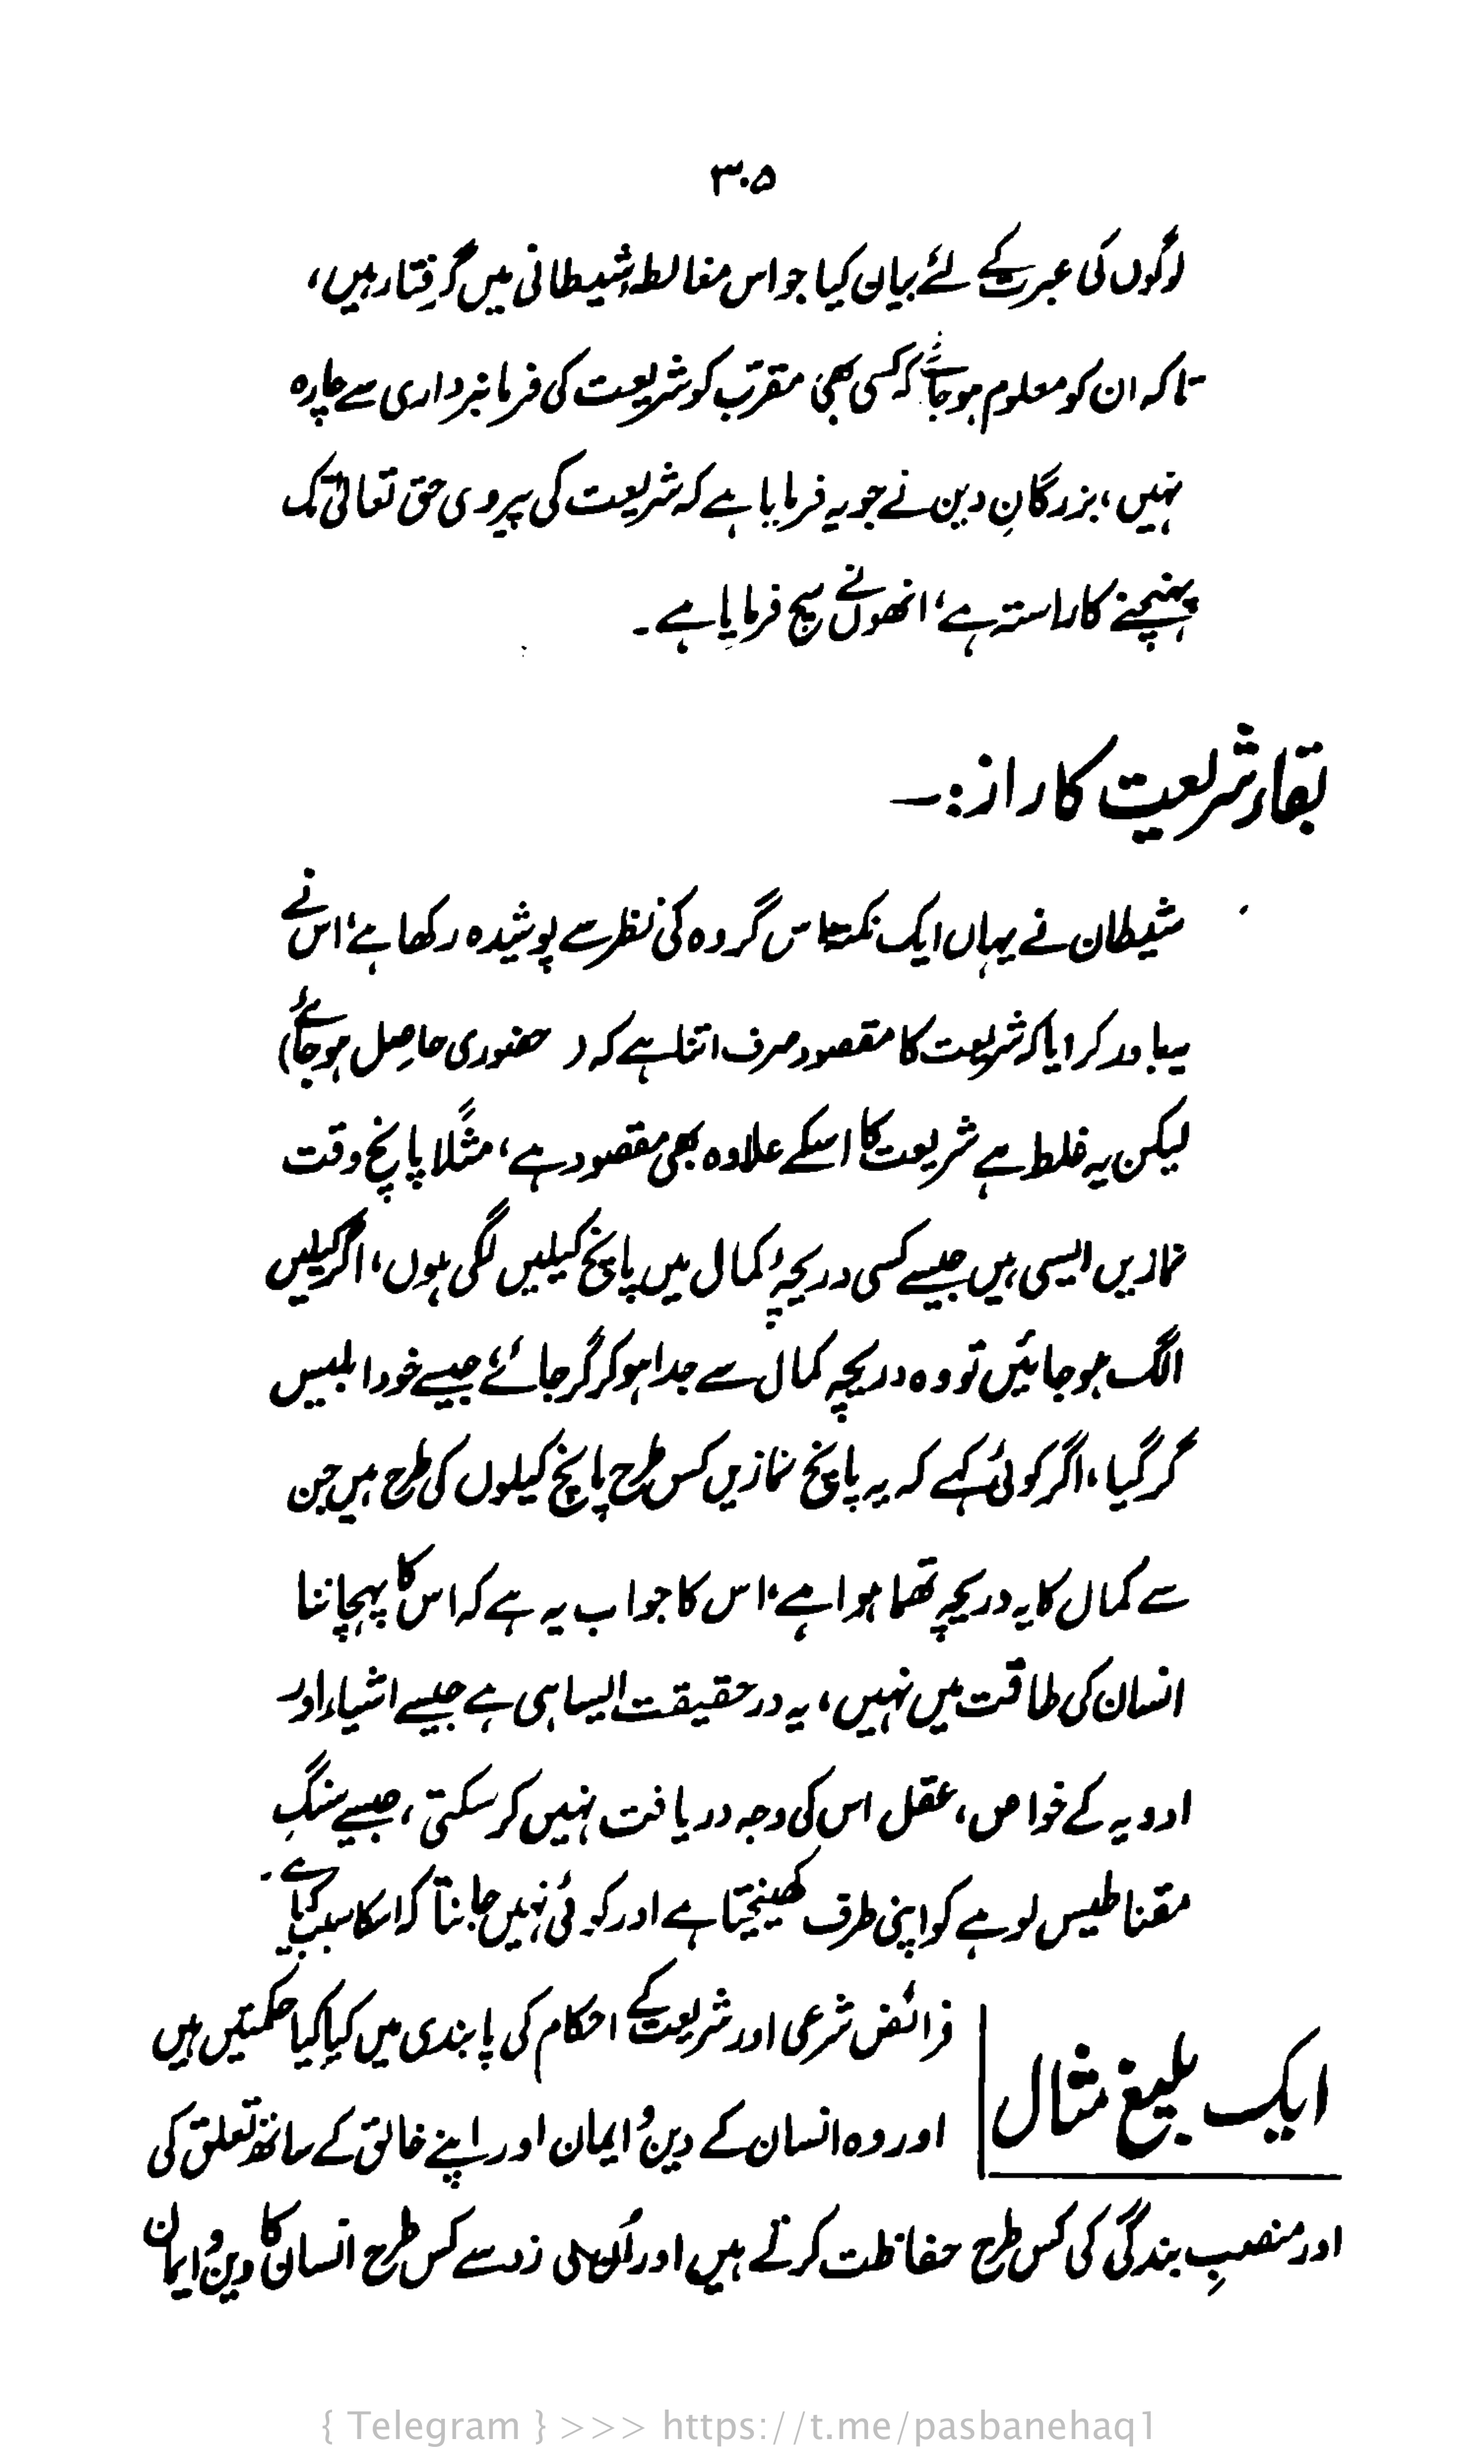 ۳۰۵
لوگوں کی عبرت کے لئے بیان کیا جو اس مغالطہ شیطانی میں گرفتار ہیں،
تاکہ ان کو معلوم ہو جائے کہ کسی بھی مقرّب کو شریعت کی فرمانبرداری سے چارہ
نہیں، بزرگانِ دین نے جو یہ فرمایا ہے کہ شریعت کی پیروی حق تعالیٰ تک
پہنچنے کا راستہ ہے، انھوں نے سچ فرمایا ہے۔
بقاء شریعت کا راز:۔
شیطان نے یہاں ایک نکتہ اس گروہ کی نظر سے پوشیدہ رکھا ہے، اس نے
یہ باور کرایا کہ شریعت کا مقصود صرف اتنا ہے کہ ( حضوری حاصل ہو جائے)
لیکن یہ غلط ہے شریعت کا اسکے علاوہ بھی مقصود ہے، مثلًا پانچ وقت
نمازیں ایسی ہیں جیسے کسی دریچۂ کمال میں پانچ کیلیں لگی ہوں، اگر کیلیں
الگ ہو جائیں تو وہ دریچہ کمال سے جدا ہو کر گر جائے، جیسے خود ابلیس
گر گیا، اگر کوئی کہے کہ یہ پانچ نمازیں کس طرح پانچ کیلوں کی طرح ہیں جن
سے کمال کا یہ دریچہ تھما ہوا ہے، اس کا جواب یہ ہے کہ اس کا پہچاننا
انسان کی طاقت میں نہیں، یہ درحقیقت ایسا ہی ہے جیسے اشیاء اور
ادویہ کے خواص، عقل اس کی وجہ دریافت نہیں کر سکتی، جیسے سنگِ
مقناطیس لوہے کو اپنی طرف کھینچتا ہے اور کوئی نہیں جانتا کہ اسکا سبب کیا ہے۔
ایک بلیغ مثال
فرائض شرعی اور شریعت کے احکام کی پابندی میں کیا کیا حکمتیں ہیں
اور وہ انسان کے دین و ایمان اور اپنے خالق کے ساتھ تعلق کی
اور منصبِ بندگی کی کس طرح حفاظت کرتے ہیں اور اُن کی زد سے کس طرح انسان کا دین و ایمان
{ Telegram } >>> https://t.me/pasbanehaq1